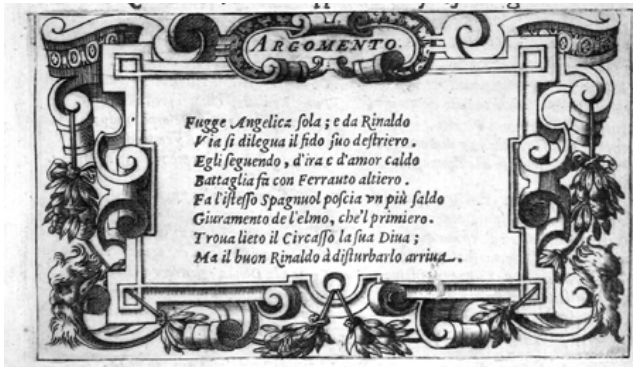 ARGOMENTO.
Fugge Angelica sola; e da Rinaldo
Via si dilegua il fido suo destriero.
Egli seguendo, d'ira e d'amor caldo
Battaglia fa con Ferrauto altiero.
Fa l'istesso Spagnuol poscia vn più saldo
Giuramento de l'elmo, che'l primiero.
Troua lieto il Circasso la sua Diua;
Ma il buon Rinaldo à disturbarlo arriua.